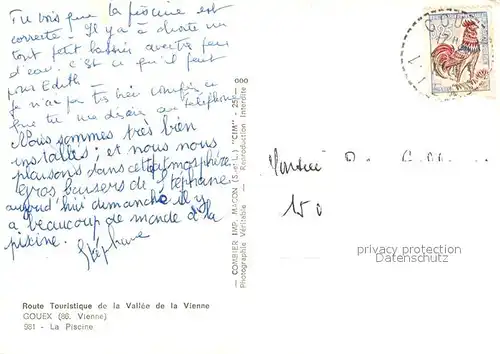 Tu vois que la piscine est
correcte - Il y a à droite un
tout petit bassin avec très peu
d'eau. c'est ce qu'il faut
pour Edith -
Je n'ai pas très bien compris ce
que tu me disais au téléphone
Nous sommes très bien
installés ; et nous nous
plaisons dans cette atmosphère
gros baisers de Stéphane
aujourd'hui dimanche il y
a beaucoup de monde à la
piscine.
Stéphane
Route Touristique de la Vallée de la Vienne
GOUEX (86. Vienne)
981 - La Piscine
— COMBIER IMP. MACON (S.-et-L.) "CIM" - 25 - 000
Photographie Véritable - Reproduction Interdite
GOUEX
Monsieur
150
privacy protection
AnsichtskartenVersand.com